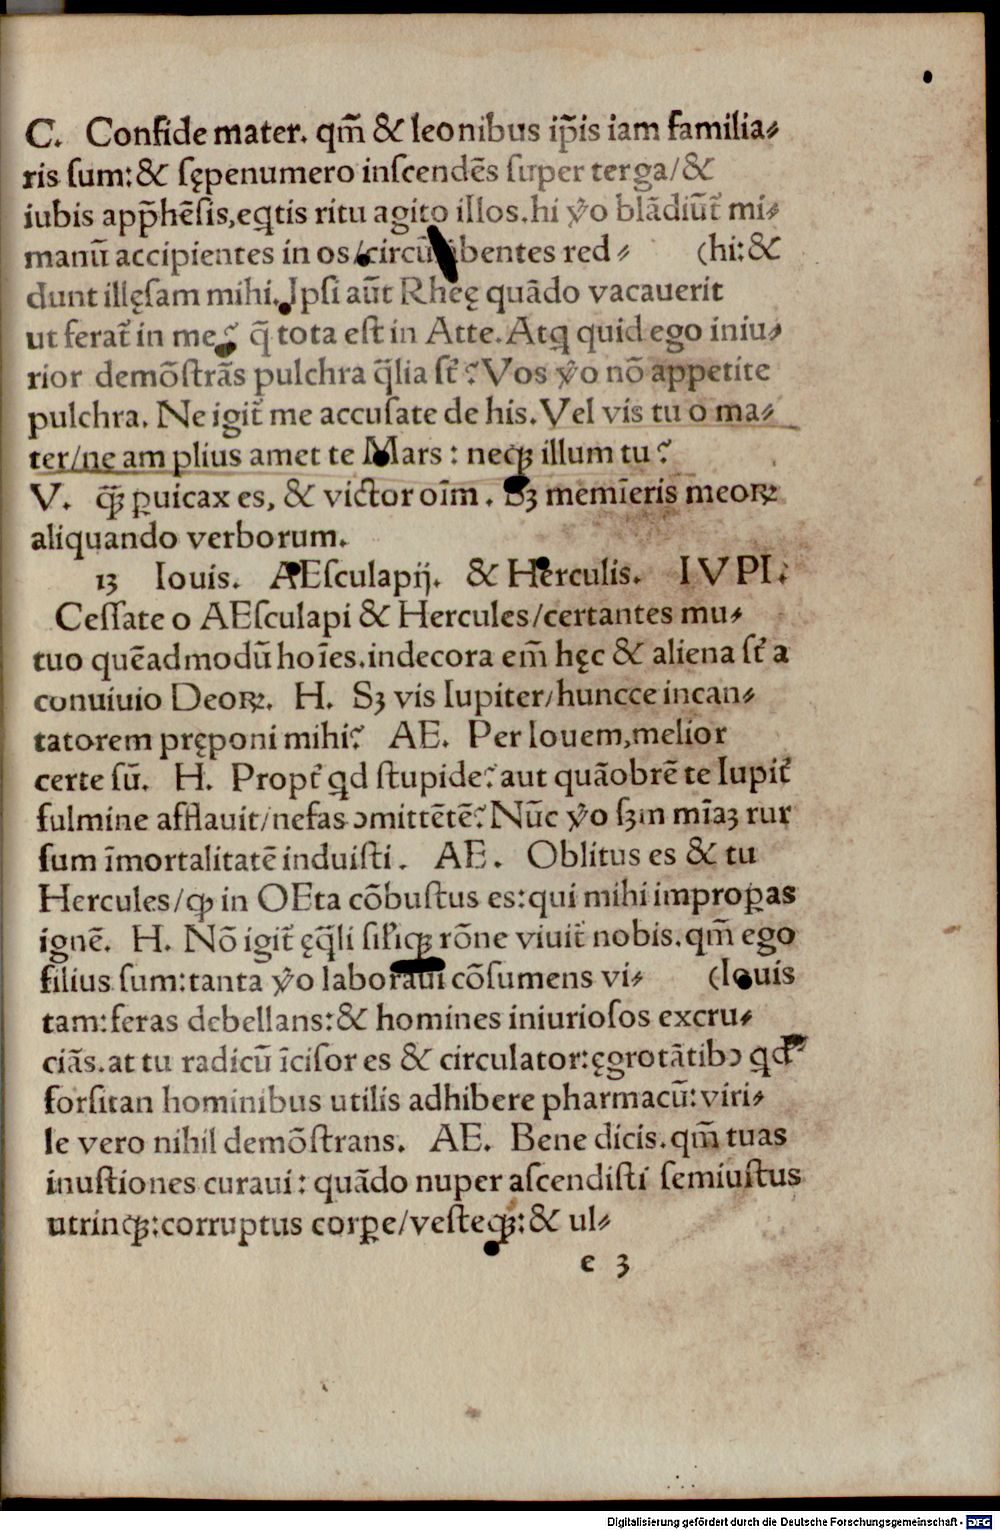 C. Confide mater. qm̃ & leonibus ip̃is iam familia⸗
ris sum:& sępenumero inscendẽs super terga/&
iubis app̃hẽsis,eqtis ritu agito illos.hi ỹo blãdiũt̃ mi⸗
manũ accipientes in os/circũ bentes red⸗ (hi:&
dunt illęsam mihi. Ipsi aũt Rheę quãdo vacauerit
ut ferat̃ in me? q̃ tota est in Atte. Atq quid ego iniu⸗
rior demõstrãs pulchra q̃lia st̃? Vos ỹo nõ appetite
pulchra. Ne igit̃ me accusate de his. Vel vis tu o ma⸗
ter/ne am plius amet te Mars: neqꝫ illum tu?
V. q̃ꝫ ꝑuicax es, & victor oĩm. Sꝫ memĩeris meoꝝ
aliquando verborum.
13 Iouis. AEsculapij. & Herculis. IVPI.
Cessate o AEsculapi & Hercules/certantes mu⸗
tuo quẽadmodũ hoĩes.indecora em̃ hęc & aliena st̃ a
conuiuio Deoꝝ. H. Sꝫ vis Iupiter/huncce incan⸗
tatorem pręponi mihi? AE. Per Iouem,melior
certe sũ. H. Propt̃ qd stupide? aut quãobrẽ te Iupit̃
fulmine afflauit/nefas ↄmittẽtẽ? Nũc ỹo sꝫm mĩaꝫ rur
sum ĩmortalitatẽ induisti. AE. Oblitus es & tu
Hercules/ꝙ in OEta cõbustus es:qui mihi improꝑas
ignẽ. H. Nõ igit̃ ęq̃li sil̃iqꝫ rõne viuit̃ nobis.qm̃ ego
filius sum:tanta ỹo laboraui cõsumens vi⸗ (Iouis
tam:feras debellans:& homines iniuriosos excru⸗
ciãs.at tu radicũ ĩcisor es & circulator:ęgrotãtibↄ qd
forsitan hominibus utilis adhibere pharmacũ:viri⸗
le vero nihil demõstrans. AE. Bene dicis.qm̃ tuas
inustiones curaui: quãdo nuper ascendisti semiustus
utrinqꝫ:corruptus corꝑe/vesteqꝫ:& ul⸗
e 3
Digitalisierung gefördert durch die Deutsche Forschungsgemeinschaft - DFG